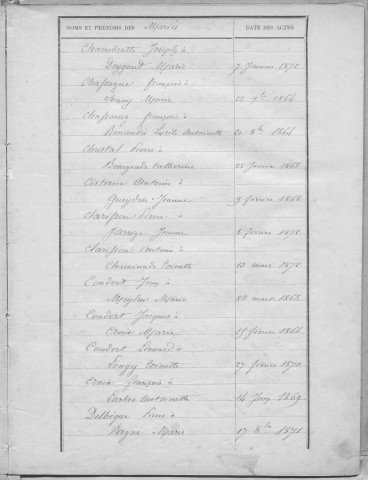 NOMS ET PRÉNOMS DES Mariés
DATE DES ACTES
Chambrette Joseph à
Marie 7 Janvier 1871
Chassagne françois à
Marie 23 9bre 1864
Chassang françois à
Lucile Antoinette 20 8bre 1864
Chastal Pierre à
Bourgeade Catherine 22 Janvier 1868
Cisterne Antoine à
Gueydon Jeanne 3 février 1866
Clarisson Pierre à
Farrege Jeanne 8 février 1871
Clarisson Antoine à
Cheminade Toinette 13 mars 1871
Condert Jean à
Meylin Marie 23 mars 1868
Condert Jacques à
Croix Marie 15 février 1866
Condert Léonard à
Longy Toinette 27 février 1870
Croix françois à
Larbre Antoinette 14 Juin 1869
Delbègue Pierre à
Vergne Marie 17 8bre 1871